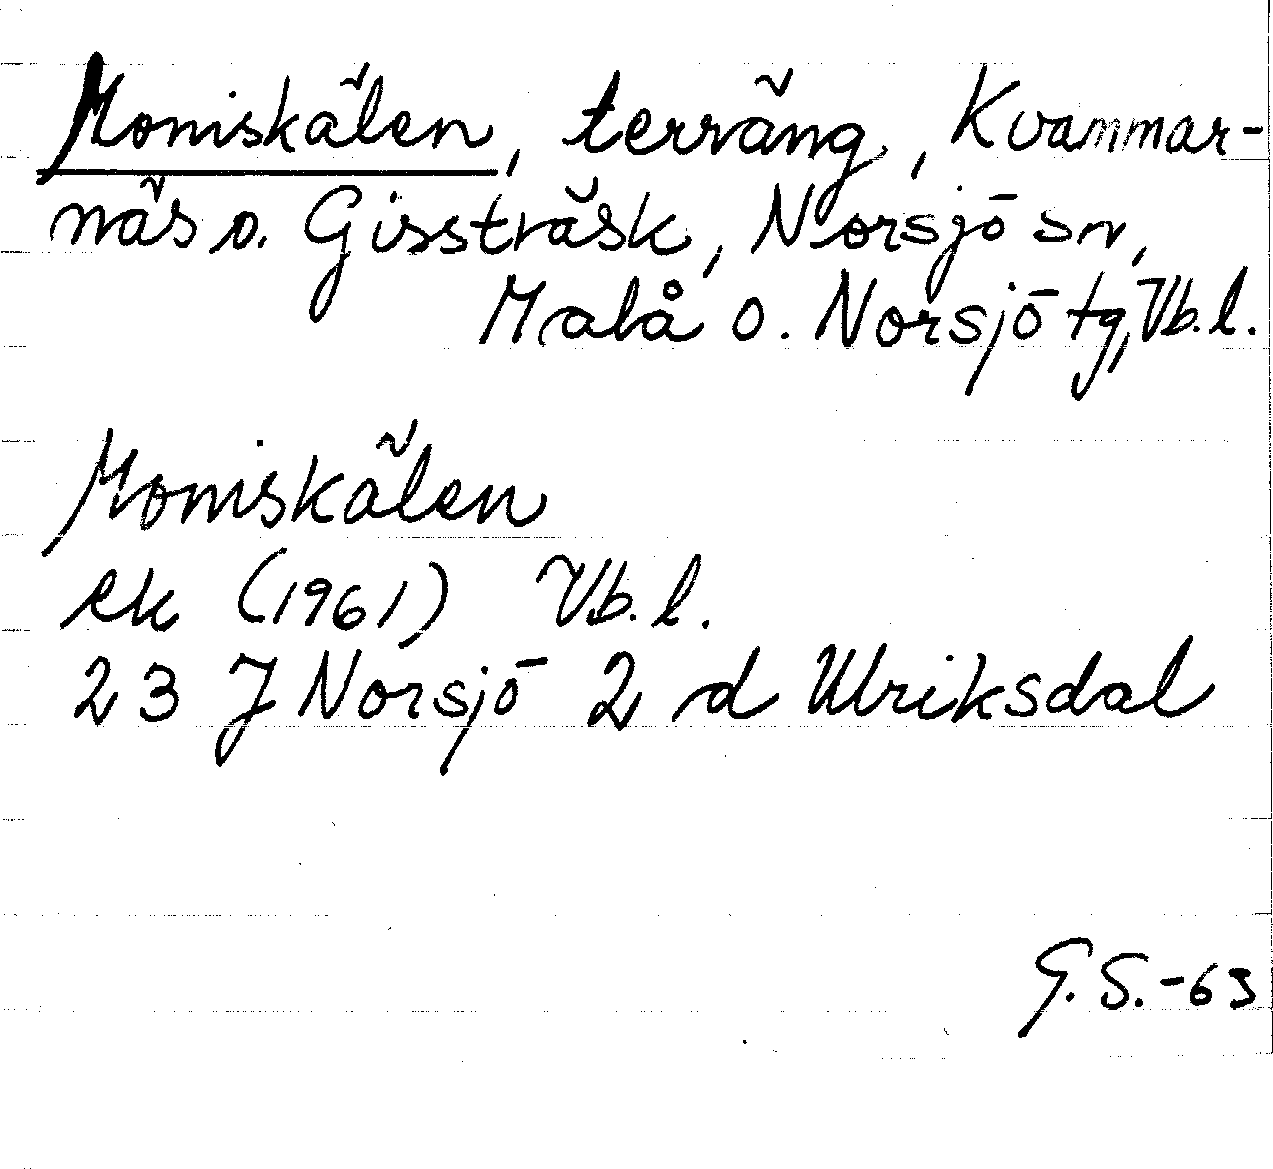 Moniskälen, terräng, Kvammar-
näs o. Gissträsk, Norsjö sn,
Malå o. Norsjö tg, Vb.l.
Moniskälen
ek (1961) Vb.l.
23 J Norsjö 2 d Ulriksdal
G.S.-63